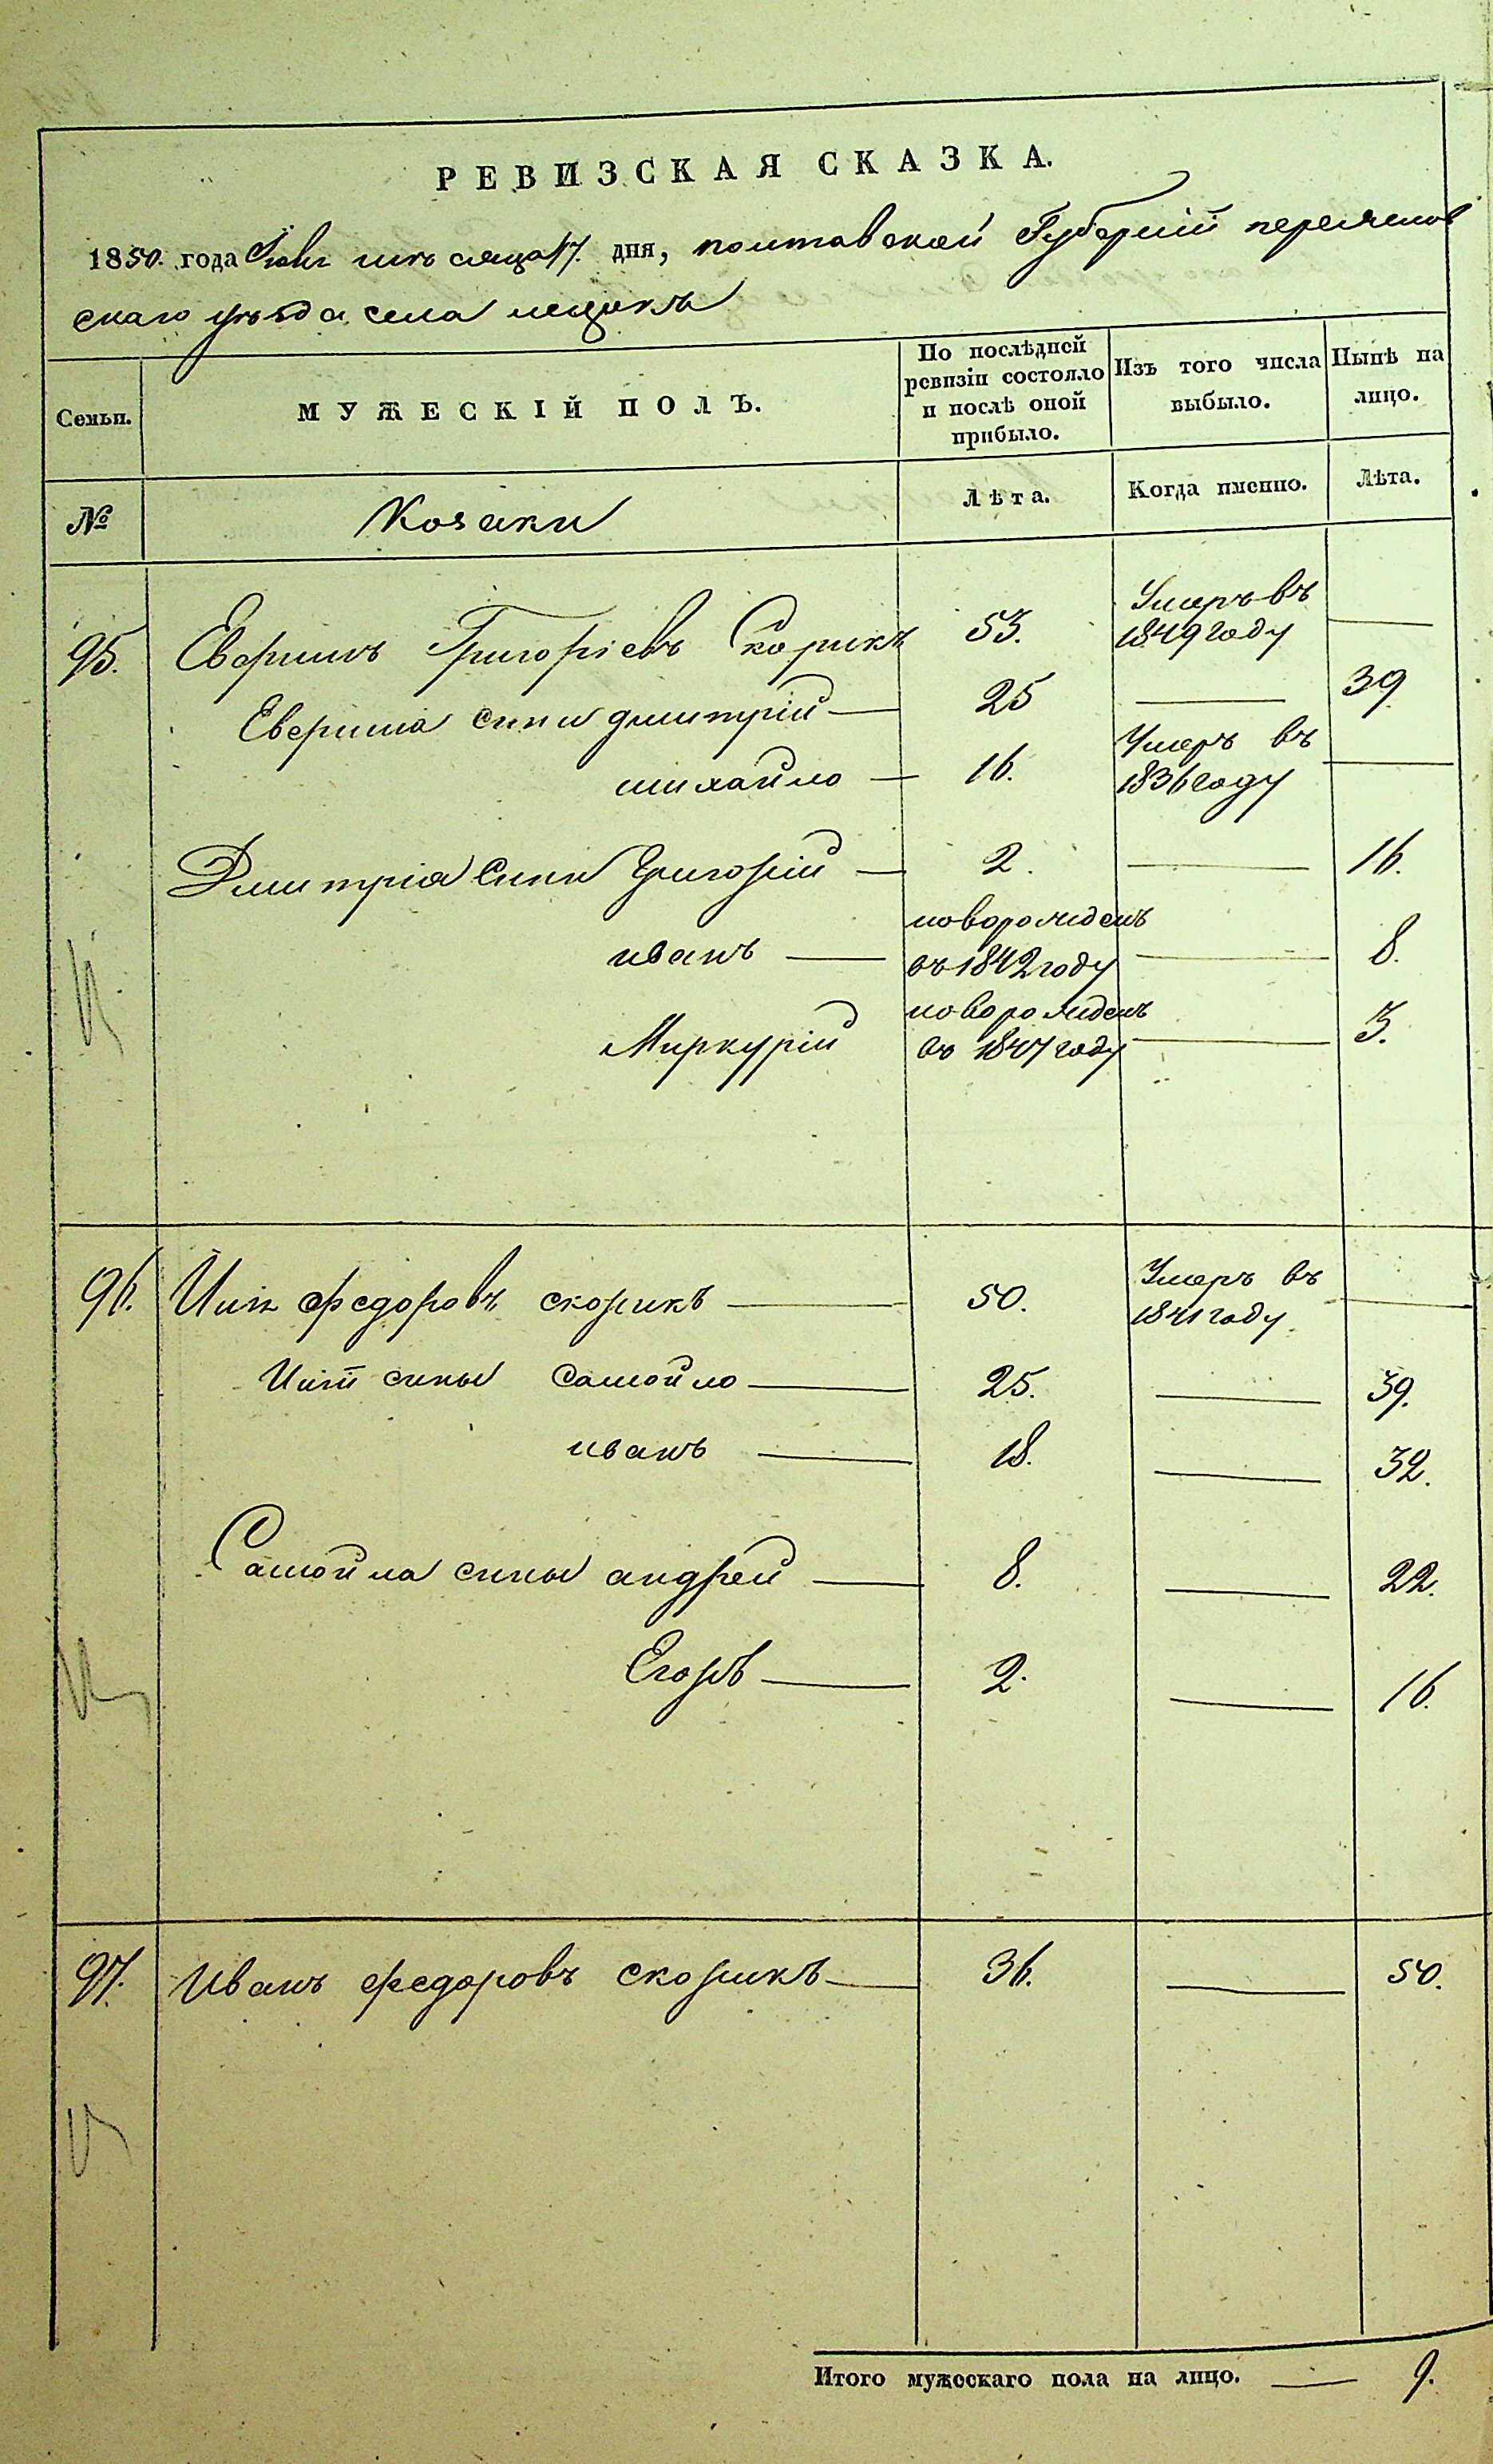 РЕВИЗСКАЯ СКАЗКА.
1850. года мѣсяца 17. дня, полтавской Губерніи переяслов
скаго уѣзда села лецокъ
Семьи.
МУЖЕСКІЙ ПОЛЪ.
По послѣдней ревизіи состояло и послѣ оной прибыло.
Изъ того числа выбыло.
Нынѣ на лицо.
№
Козаки
Лѣта.
Когда именно.
Лѣта.
95. Григоріевъ Скорикъ 53. Умеръ въ 1849 году —
сини димитрій — 25 — 39
михайло — 16. Умеръ въ 1836 году —
Димитрія сини Григорій — 2. — 16.
иванъ — новорожденъ въ 1842 году — 8.
Миркурій новорожденъ въ 1847 году — 3.
96. федоровъ скорикъ — 50. Умеръ въ 1841 году —
сины самойло — 25. — 39.
иванъ — 18. — 32.
Самойла сины андрей — 8. — 22.
Егоръ — 2. — 16.
97. Иванъ федоровъ скорикъ — 36. — 50.
Итого мужескаго пола на лицо. — 9.